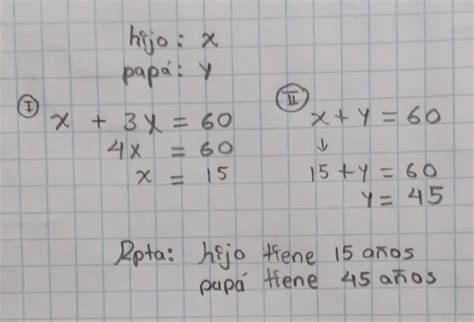 hijo: x
papá: y
I
x + 3x = 60
4x = 60
x = 15
II
x + y = 60
↓
15 + y = 60
y = 45
Rpta: hijo tiene 15 años
papá tiene 45 años